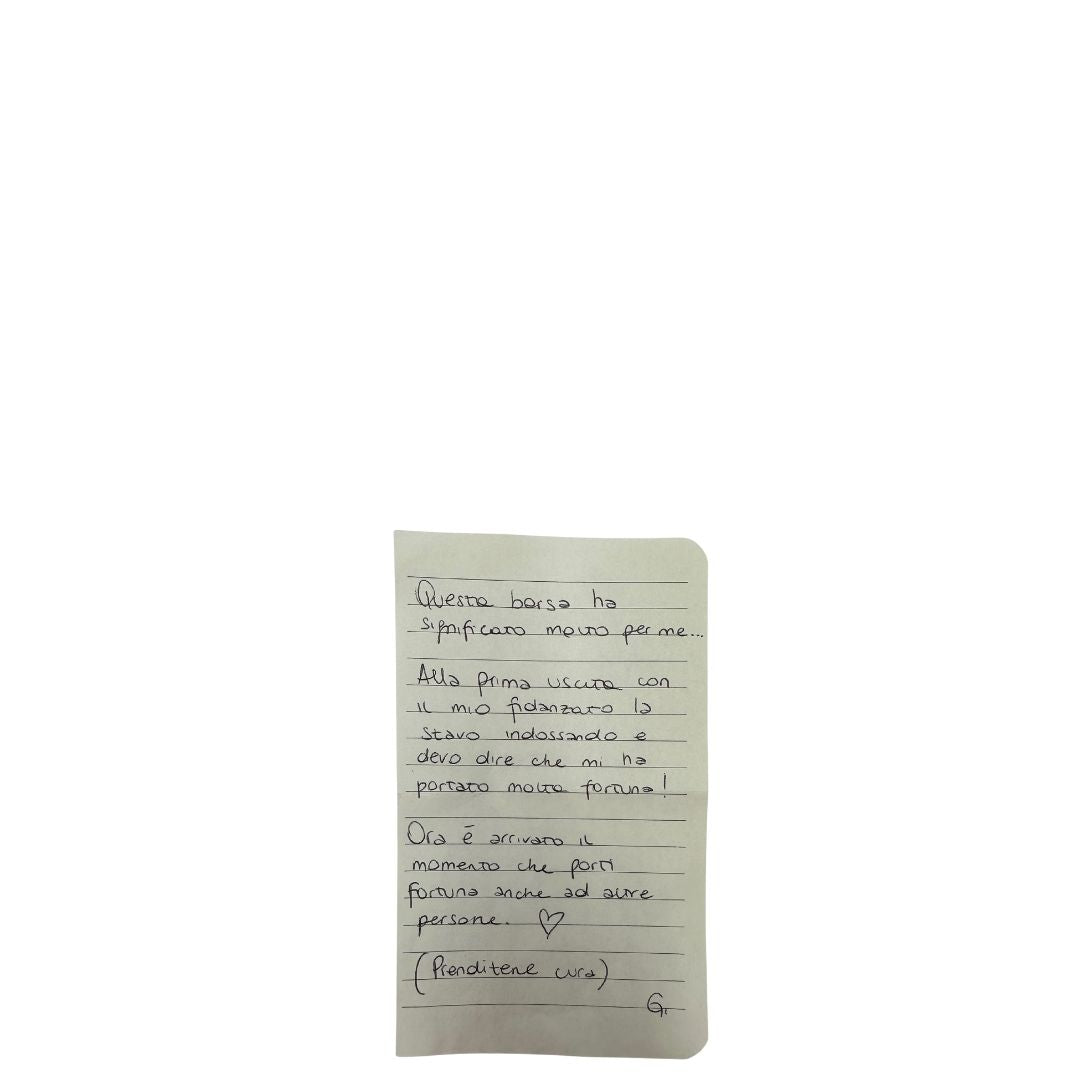 Questa borsa ha
significato molto per me...
Alla prima uscita con
il mio fidanzato la
stavo indossando e
devo dire che mi ha
portato molta fortuna!
Ora è arrivato il
momento che porti
fortuna anche ad altre
persone. ♡
(Prenditene cura)
G.